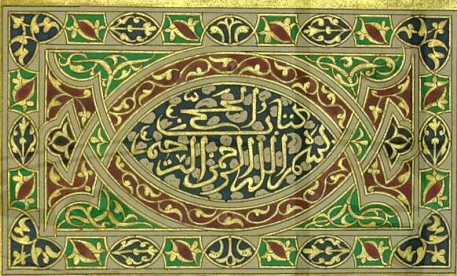 كتاب
بسم الله الرحمن الرحيم